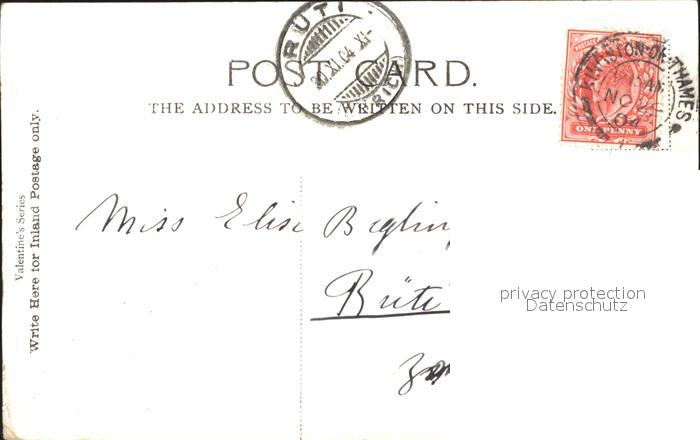 RÜTI
30.XI.04 XI-
POST CARD.
THE ADDRESS TO BE WRITTEN ON THIS SIDE.
KINGSTON-ON-THAMES
NO
04
ONE PENNY
Valentine's Series
Write Here for Inland Postage only.
Miss Elise
Rüti
privacy protection
Datenschutz